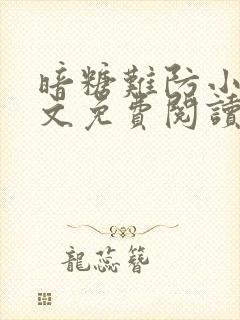 暗糖難防小
文免費閱讀
龍蕊簪